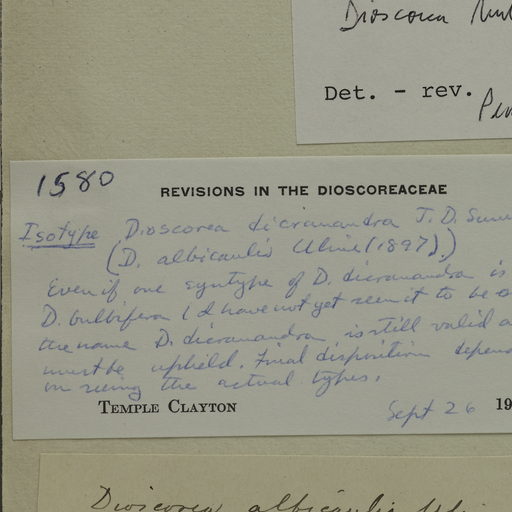 Dioscorea
Det. - rev.
1580
REVISIONS IN THE DIOSCOREACEAE
Isotype Dioscorea dicranandra J. D. Smi
(D. albicaulis Uline (1897))
Even if one syntype of D. dicranandra is
D. bulbifera (I have not yet seen it to be
the name D. dicranandra is still valid a
must be upheld. Final disposition depend
on seeing the actual types.
TEMPLE CLAYTON
Sept 26 19
Dioscorea albicaulis